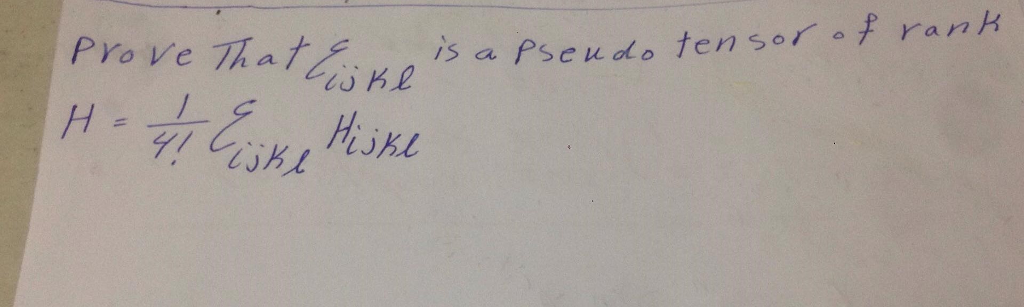 Prove That ε_ijkl is a Pseudo tensor of rank
H = 1/4! ε_ijkl H_ijkl